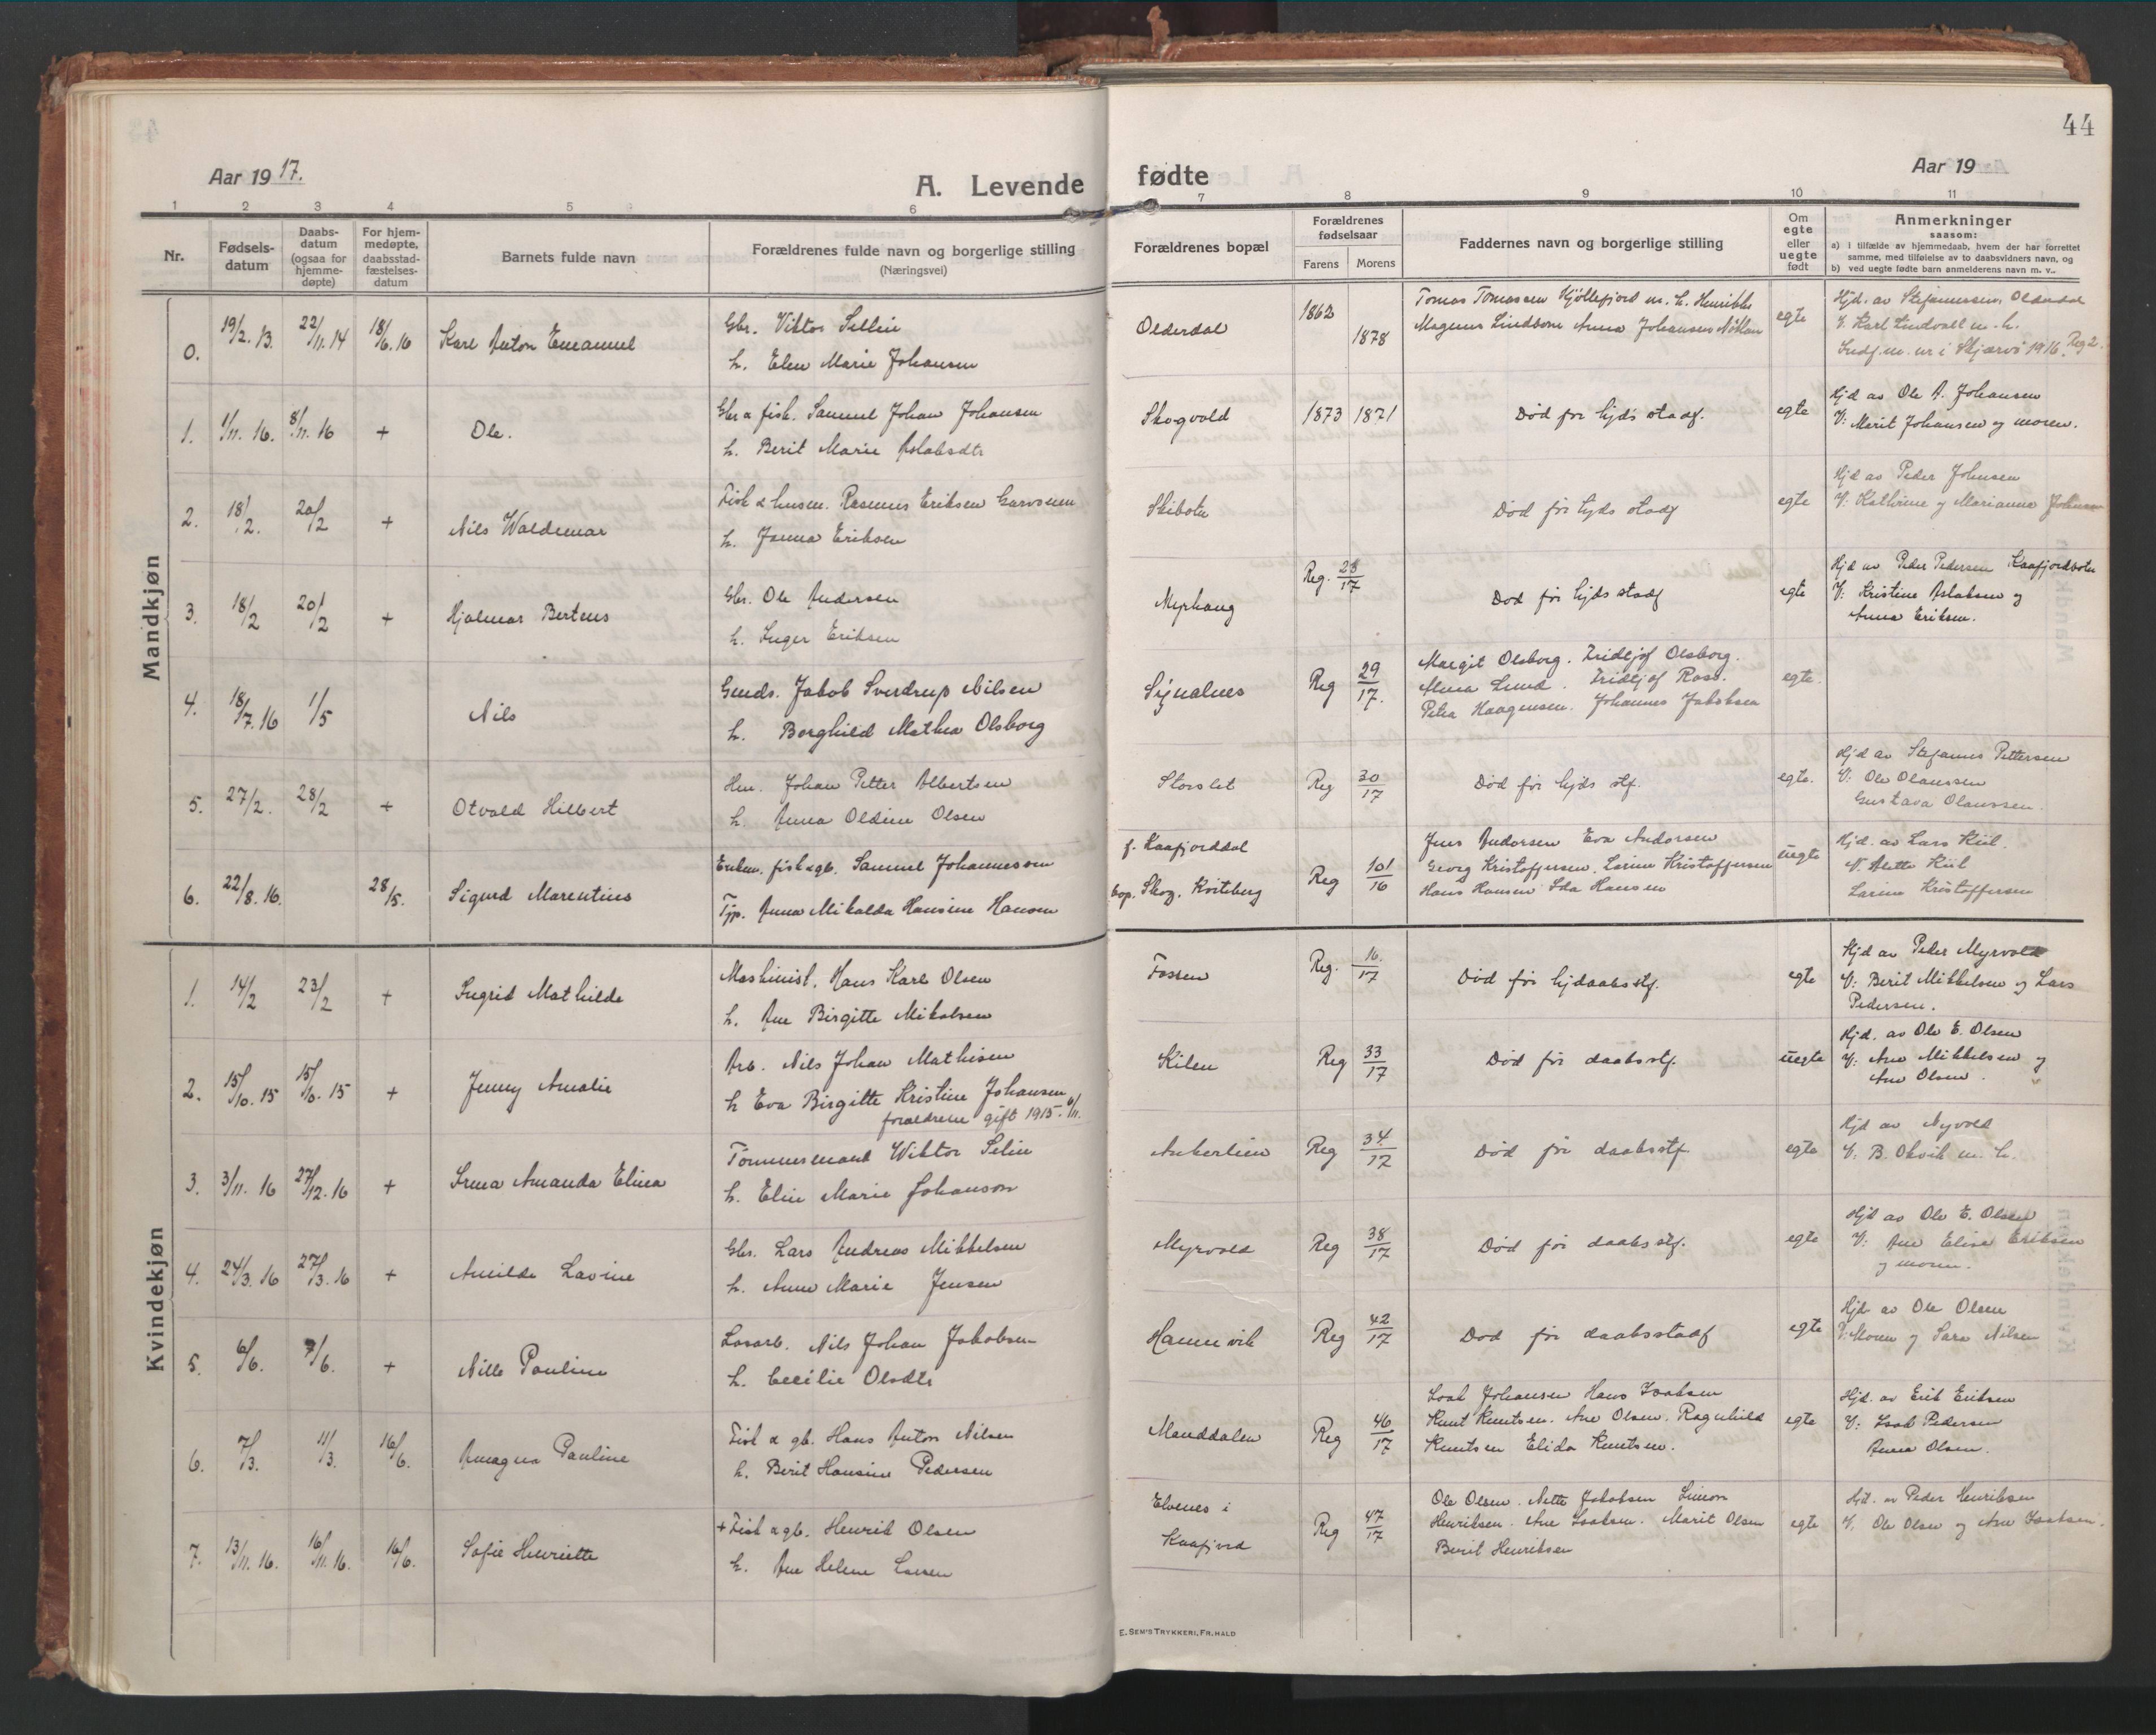 44
Aar 19 17.
A. Levende
fødte
Aar 19
1 2 3 4 5 6
7 8 9 10 11
Nr.
Fødsels-
datum
Daabs-
datum
(ogsaa for
hjemme-
døpte)
For hjem-
medøpte,
daabsstad-
fæstelses-
datum
Barnets fulde navn
Forældrenes fulde navn og borgerlige stilling
(Næringsvei)
Forældrenes bopæl
Forældrenes
fødselsaar
Farens Morens
Faddernes navn og borgerlige stilling
Om
egte
eller
uegte
født
Anmerkninger
saasom:
a) i tilfælde av hjemmedaab, hvem der har forrettet
samme, med tilføielse av to daabsvidners navn, og
b) ved uegte fødte barn anmelderens navn m. v..
Mandkjøn
0. 19/2. 13. 22/11. 14 18/6. 16 Karl Anton Emanuel
Gbr. Viktor Sellin
h. Elen Marie Johansen
Olderdal
1862 1878
Tomas Tomassen Kjøllefjord m. h. Henrikke
Magnus Lindbom Anna Johansen
egte
Hjd. av Stefanussen, Olderdal
V. Karl Lindvall m. h.
Indf. m. nr i Skjærvø 1916. Reg 2.
1. 1/11. 16. 8/11. 16 + Ole.
Gbr & fisk. Samuel Johan Johansen
h. Berit Marie Aslaksdtr
Skogvold
1873 1871
Død før hjds stadf.
egte
Hjd av Ole A. Johansen
V: Marit Johansen og moren.
2. 18/2. 20/2 + Nils Waldemar
Fisk & husm. Rasmus Eriksen Garvoeien
h. Janna Eriksen
Skibotn
Død før hjds stadf
egte
Hjd av Peder Johnsen
V: Kathrine og Marianna Johnsen
3. 18/2 20/2 + Hjalmar Berteus
Gbr. Ole Andersen
h. Inger Eriksen
Myrhaug
Reg. 28/17
Død før hjds stadf
egte
Hjd av Peder Pedersen Kaafjordbotn
V: Kristine Aslaksen og
Anna Eriksen.
4. 18/7. 16 1/5 Nils
Gaards. Jakob Sverdrup Nilsen
h. Borghild Mathea Olsborg
Signalnes
Reg 29/17.
Margit Olsborg. Fridtjof Olsborg.
Alma Lund. Fridtjof Ross.
Petra Haagensen. Johannes Jakobsen
egte.
5. 27/2. 28/2 + Otvald Hilbert
Hm. Johan Petter Albertsen
h. Anna Oldine Olsen
Storslet
Reg 30/17
Død før hjds stf.
egte.
Hjd av Stefanus Pettersen
V: Ole Olaussen
Gustava Olaussen.
6. 22/8. 16. 28/5. Sigurd Marentius
Enkem. fisk & gb. Samuel Johannessen
Tjp. Anna Mikalda Hansine Hansen
f. Kaafjorddal
bop. Skog, Kvitberg
Reg 101/16
Jens Andersen Eva Andersen
Georg Kristoffersen. Larine Kristoffersen
Hans Hansen Ida Hansen
uegte
Hjd. av Lars Kiil.
V. Alette Kiil
Larine Kristoffersen
Kvindekjøn
1. 14/2 23/2 + Ingrid Mathilde
Maskinist. Hans Karl Olsen
h. Ane Birgitte Mikalsen
Fossen
Reg. 16./17
Død før hjdaabs stf.
egte
Hjd av Peder Myrvold
V: Berit Mikkelsen og Lars
Pedersen.
2. 15/10. 15 15/10. 15 + Jenny Amalie
Arb. Nils Johan Mathisen
h Eva Birgitte Kristine Johansen
forældrene gift 1915. 6/11.
Kilen
Reg 33/17
Død før daabsstf.
uegte
Hjd. av Ole E. Olsen
V: Ane Mikkelsen og
Ane Olsen.
3. 3/11. 16 27/12. 16 + Irma Amanda Elina
Tømmermand Wiktor Selin
h. Elin Marie Johanson
Ankerlien
Reg 34/17
Død før daabsstf.
egte
Hjd av Nyvold
V: B. Okvik m. h.
4. 24/3. 16 27/3. 16 + Amilde Lavine
Gbr. Lars Andreas Mikkelsen
h. Anne Marie Jensen
Myrvold
Reg 38/17
Død før daabs stf.
egte
Hjd av Ole E. Olsen
V: Ane Elise Eriksen
og moren.
5. 6/6. 7/6. + Nille Pauline
Losarb. Nils Johan Jakobsen
h. Cecilie Olsdtr
Hamnvik
Reg 42/17
Død før daabsstadf
egte
Hjd. av Ole Olsen
V: Moren og Sara Nilsen
6. 7/3. 11/3. 16/6. Amagna Pauline
Fisk & gb. Hans Anton Nilsen
h. Berit Hansine Pedersen
Manddalen
Reg 46/17
Isak Johansen Hans Isaksen
Knut Knutsen. Ane Olsen. Ragnhild
Knutsen Elida Knutsen.
egte
Hjd. av Erik Eriksen
V: Isak Pedersen
Anna Olsen.
7. 13/11. 16. 16/11. 16. 16/6. Sofie Henriette
+ Fisk & gb. Henrik Olsen
h. Ane Helene Larsen
Elvenes i
Kaafjord
Reg 47/17
Ole Olsen. Nette Jakobsen Simon
Henriksen. Ane Isaksen. Marit Olsen
Berit Henriksen
egte
Hjd. av Peder Henriksen
V. Ole Olsen og Ane Isaksen.
E. SEM'S TRYKKERI, FR. HALD